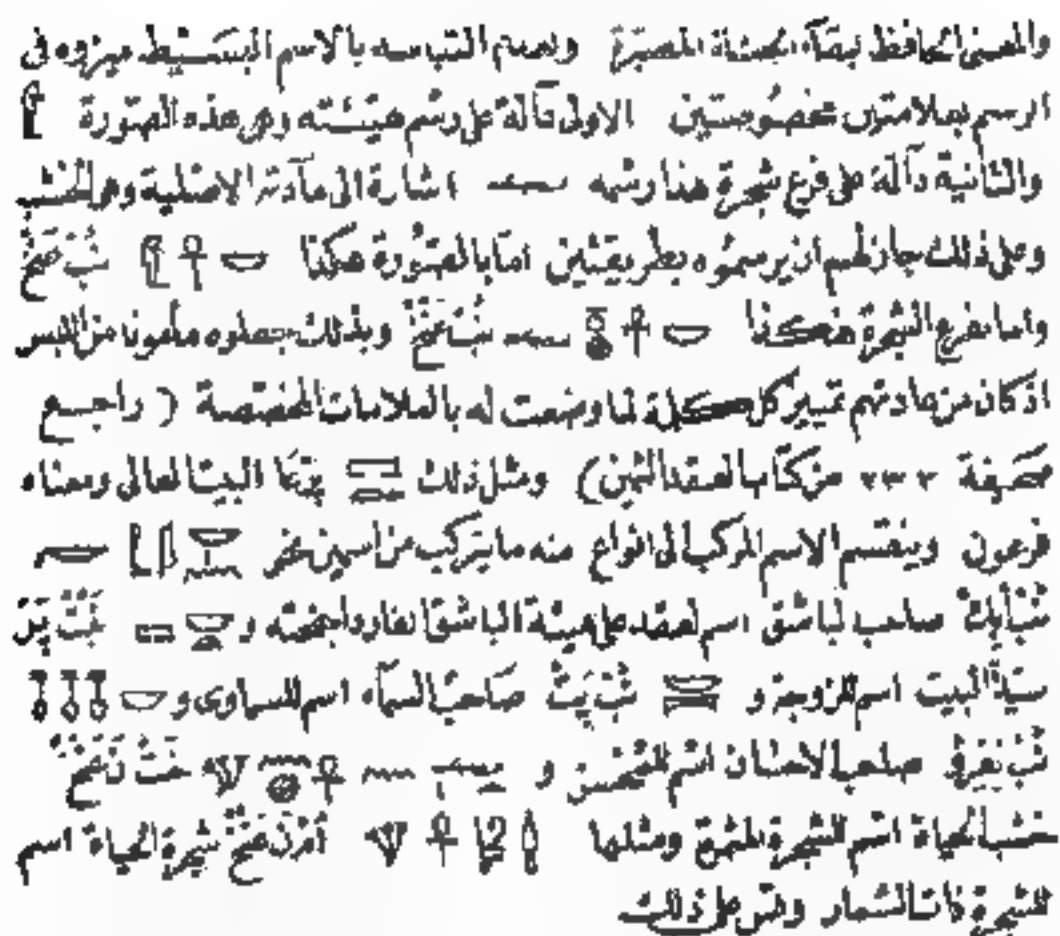 والمعنى الحافظ لبقآء الجثة المصبرة ولعدم التباسه بالاسم البسيط ميزوه فى
الرسم بعلامتين مخصوصتين الاولى دآلة على رسم هيئته وهى هذه الصورة
والثانية دآلة على فرع شجرة هذا رسمه اشارة الى مآدته الاصلية وهى الخشب
وعلى ذلك جاز لهم ان يرسموه بطريقتين اما بالصورة هكذا 𓎟 𓋹 نب عنخ
واما بفرع الشجرة فهكذا 𓎟 𓋹 نب عنخ وبذلك جعلوه مأمونا من اللبس
اذ كان من عادتهم تمييز كل كلمة لما وضعت له بالعلامات المختصة ( راجع
صحيفة ٢٣٣ من كتاب العقد الثمين) ومثل ذلك پرعا البيت العالى ومعناه
فرعون وينقسم الاسم المركب الى انواع منه ما يتركب من اسمين نحو
صاحب الباشق اسم لعقد على هيئة الباشق الفارد اجنحته و نبت پر
سيدة البيت اسم للزوجة و نب پت صاحب السمآء اسم للسماوى و 𓎟 𓄤 𓄤 𓄤
نب نفرو صاحب الاحسان اسم للمحسن و خت ن عنخ
خشب الحياة اسم للشجرة المثمرة ومثلها 𓋹 عنخ شجرة الحياة اسم
للشجرة ذات الثمار وقس على ذلك